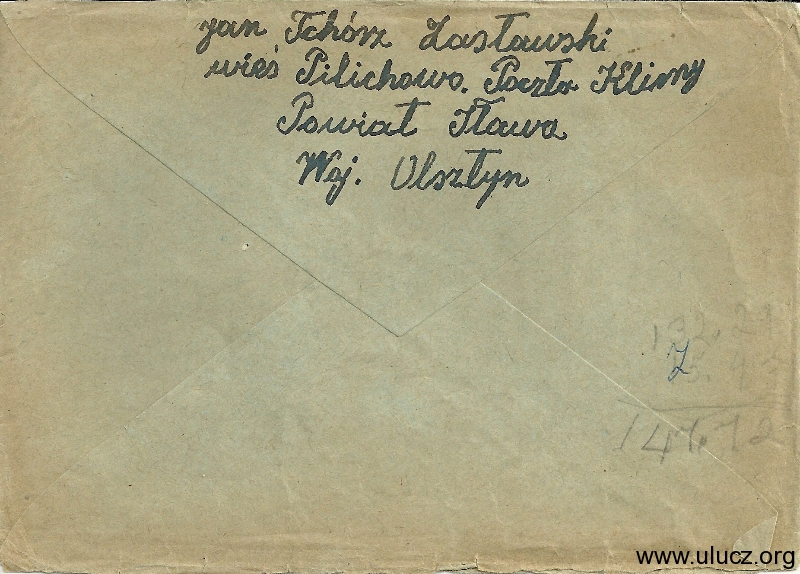 Jan Tchórz Zasławski
wieś Pilichowo. Poczta Klimy
Powiat Iława
Woj. Olsztyn
Z
www.ulucz.org